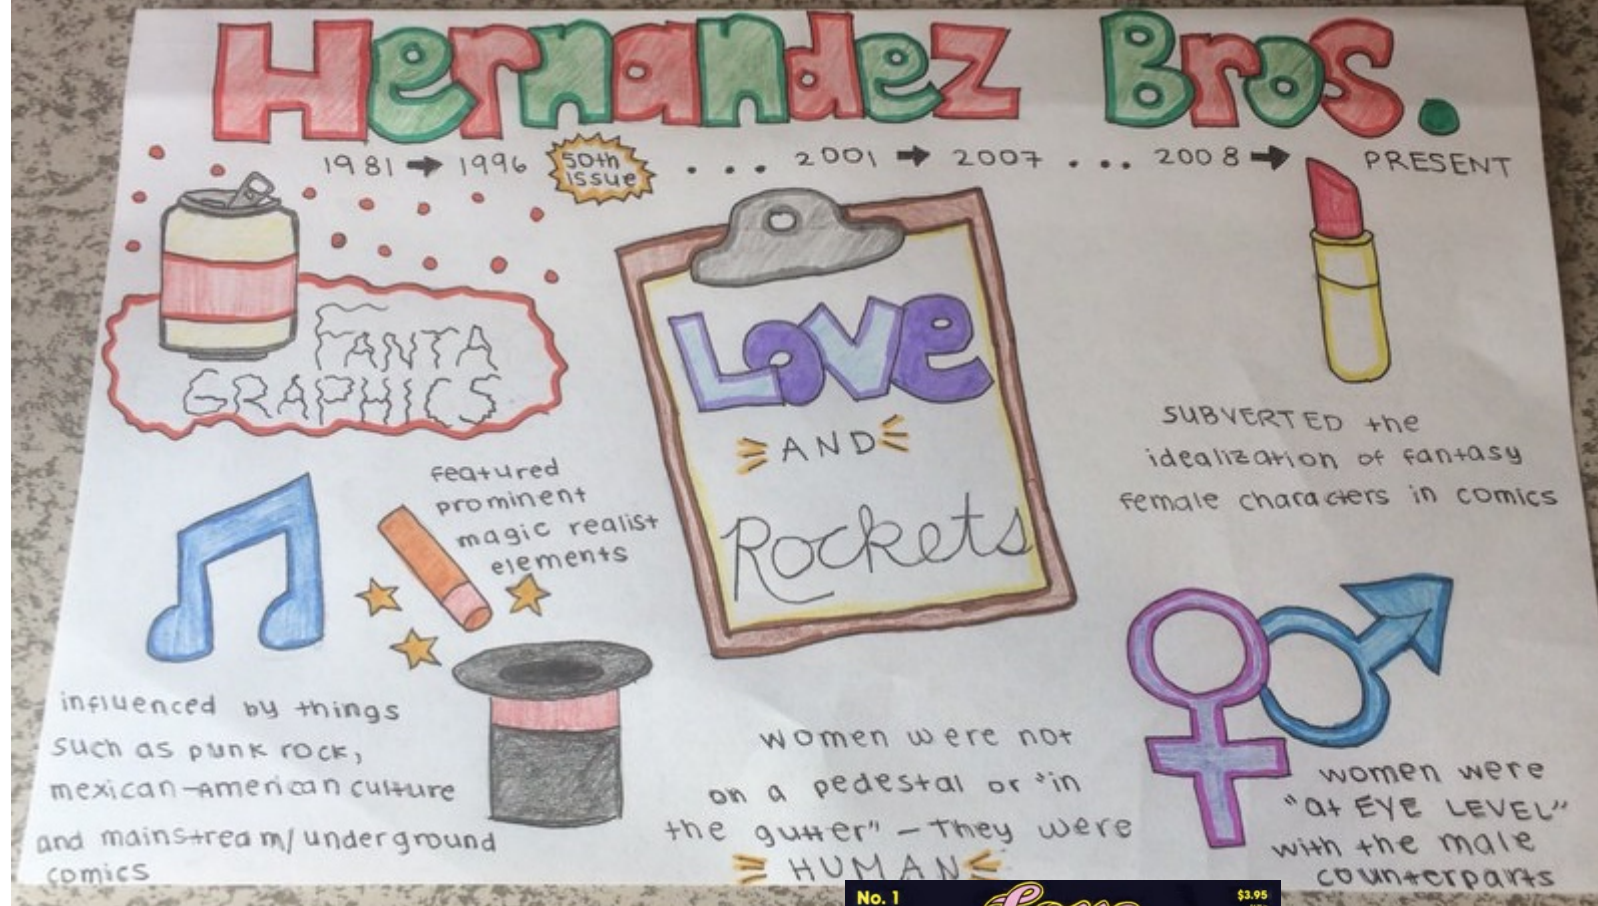 Hernandez Bros.
1981 → 1996 50th issue . . . 2001 → 2007 . . . 2008 → PRESENT
FANTA
GRAPHICS
LOVE
AND
Rockets
SUBVERTED the
idealization of fantasy
female characters in comics
featured
prominent
magic realist
elements
influenced by things
such as punk rock,
mexican-American culture
and mainstream/underground
comics
women were not
on a pedestal or "in
the gutter" - They were
HUMAN
women were
"at EYE LEVEL"
with the male
counterparts
No. 1
$3.95